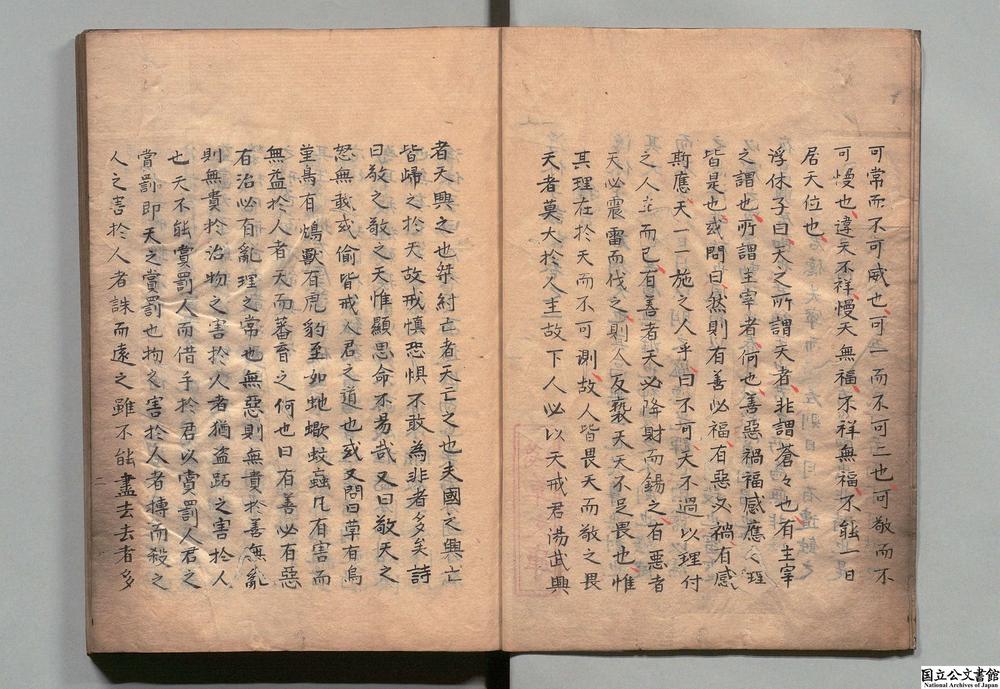 可常而不可威也可一而不可二也可敬而不
可慢也違天不祥慢天無福不祥無福不能一日
居天位也
浮休子曰天之所謂天者非謂蒼々也有主宰
之謂也所謂主宰者何也善惡禍福感應之理
皆是也或問曰然則有善必福有惡必禍有感
斯應天一一施之人乎曰不可天不過以理付
之人立而已有善者天必降財而錫之有惡者
天必震雷而伐之則人反褻天天不足畏也惟
其理在於天而不可測故人皆畏天而敬之畏
天者莫大於人主故下人必以天戒君湯武興
者天興之也桀紂亡者天亡之也夫國之興亡
皆歸之於天故戒慎恐懼不敢為非者多矣詩
曰敬之敬之天惟顯思命不易哉又曰敬天之
怒無敢或偷皆戒人君之道也或又問曰草有烏
堇鳥有鴆獸有虎豹至如虵蠍蚊蝱凡有害而
無益於人者天而蕃育之何也曰有善必有惡
有治必有亂理之常也無惡則無貴於善無亂
則無貴於治物之害於人者猶盜跖之害於人
也天不能賞罰人而借手於君以賞罰人君之
賞罰即天之賞罰也物之害於人者搏而殺之
人之害於人者誅而遠之雖不能盡去去者多
国立公文書館
National Archives of Japan